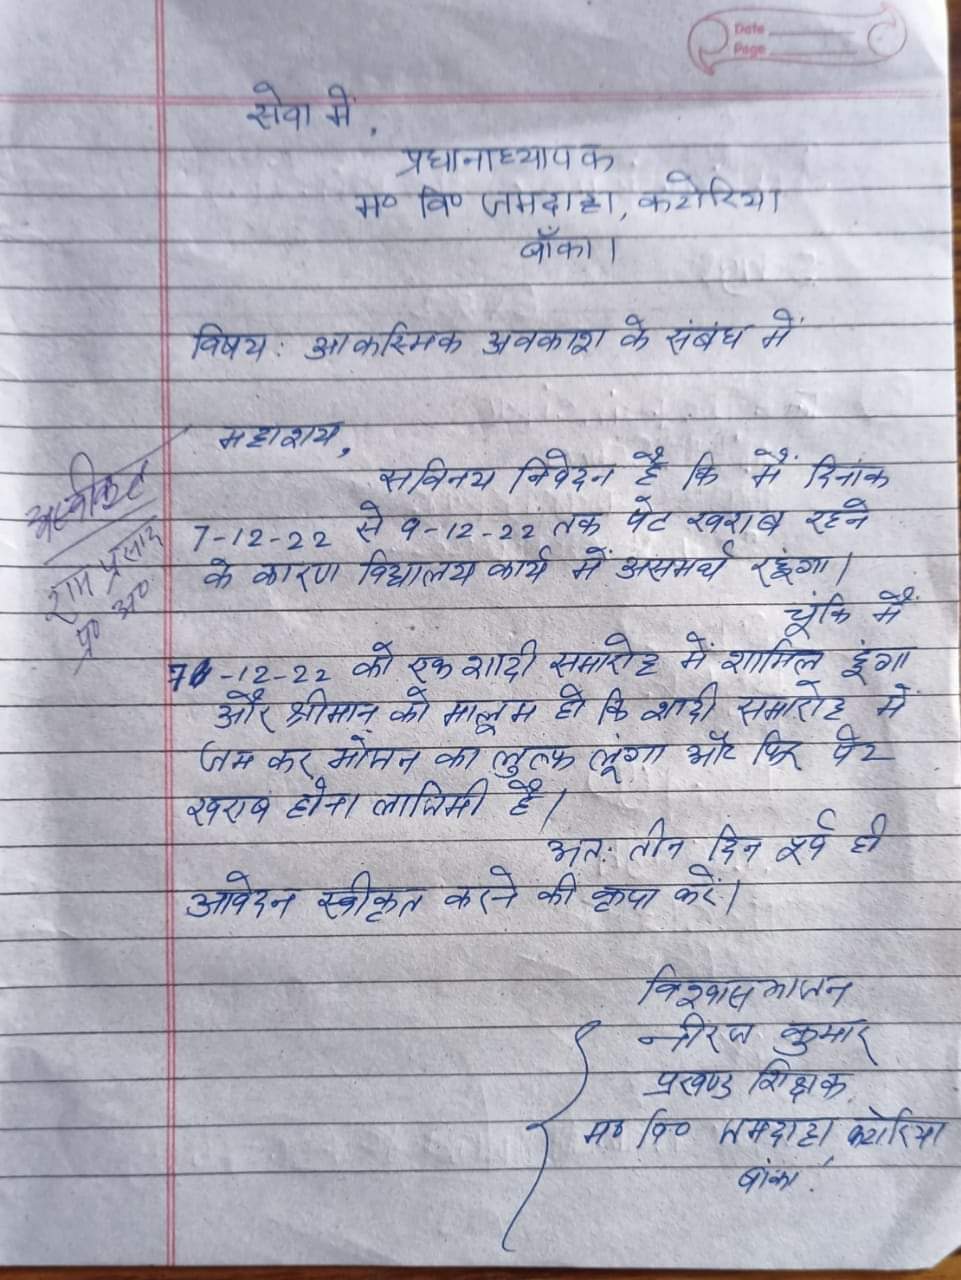 Date
Page
सेवा में,
प्रधानाध्यापक
म० वि० जमदाहा, कटोरिया
बाँका।
विषय: आकस्मिक अवकाश के संबंध में
महाशय,
सविनय निवेदन है कि मैं दिनांक
7-12-22 से 9-12-22 तक पेट खराब रहने
के कारण विद्यालय कार्य में असमर्थ रहूंगा।
चूंकि मैं
-12-22 को एक शादी समारोह में शामिल हूंगा
और श्रीमान् को मालूम हो कि शादी समारोह में
जम कर भोजन का लुत्फ लूंगा और फिर पेट
खराब होना लाजिमी है।
अतः तीन दिन पूर्व ही
आवेदन स्वीकृत करने की कृपा करें।
विश्वास भाजन
नीरज कुमार
प्रखण्ड शिक्षक
म० वि० जमदाहा, कटोरिया
बांका।
राम प्रसाद
प्र० अ०